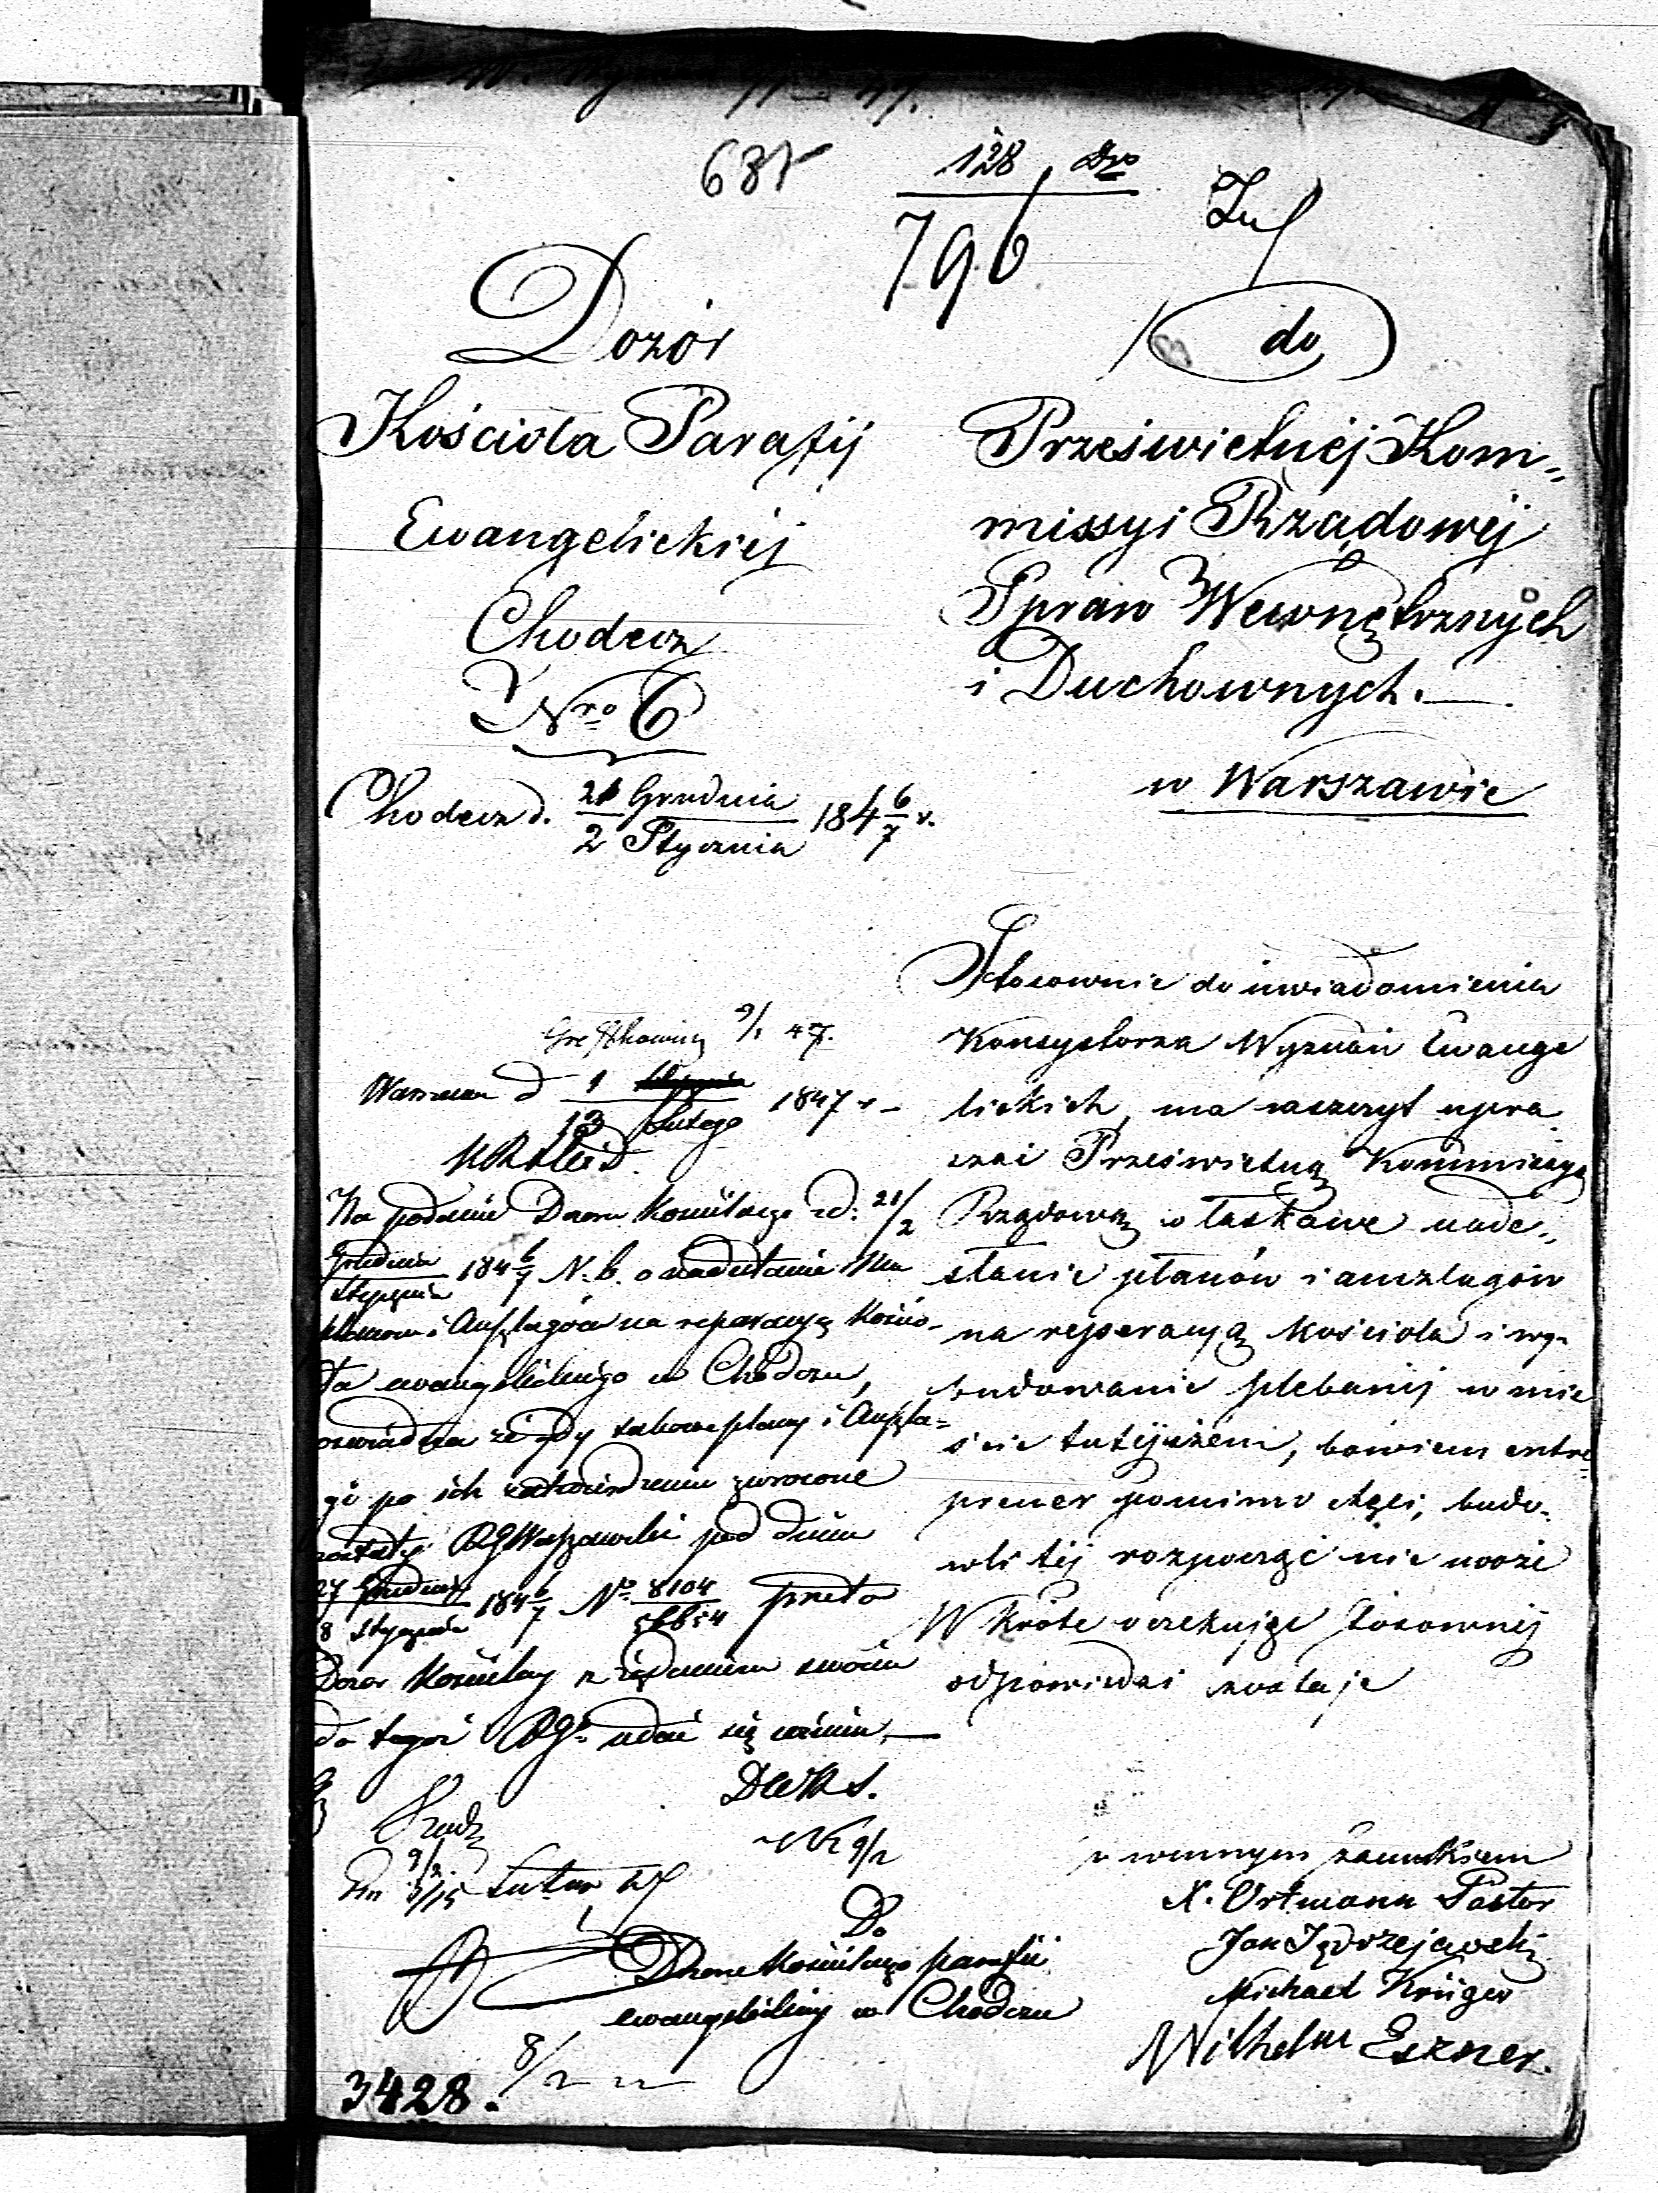 128
796
Dozór
Kościoła Parafij
Ewangelickiéj
Chodecz
Nro 6
Chodecz d. 21 Grudnia / 2 Stycznia 184 6/7 r.
do
Prześwietnéj Kom-
missyi Rządowéj
Spraw Wewnętrznych
i Duchownych.
w Warszawie
Stosownie do uwiadomienia
Konsystorza Wyznań Ewange
lickich, ma zaszczyt upra
szać Prześwietną Kommissyą
Rządową o łaskawe nade-
słanie planów i anszlagów
na reperacyą kościoła i wy-
budowanie plebanij w mie
ście tutejszém, bowiem entre-
prener pomimo chęci, budo-
wli téj rozpocząć nie może
W krótce oczekując stosownéj
odpowiedzi zostaje
z winnym szacunkiem
Ortmann Pastor
Jan Jędrzejewski
Michael Krüger
Wilhelm Eszner.
9/1 47.
Warszawa d 1 / 13 Lutego 1847 r
Na podanie Dozoru Kościelnego z d: 21/2
Grudnia / Stycznia 184 6/7 N. 6. o nadesłanie Mu
planów i Anszlagów na reperacyą Kościo-
ła ewangelickiego w Chodczu,
oświadcza że gdy takowe plany i Anszla-
gi po ich zatwierdzeniu zwrócone
zostały RG Warszawski pod dniem
27 Grudnia / 8 Stycznia 184 6/7 No 8104 przeto
Dozór Kościelny z żądaniem swoim
do tegoż RGo udać się winien.
Do
Dozoru Kościelnego parafii
ewangelickiej w Chodczu
3428.